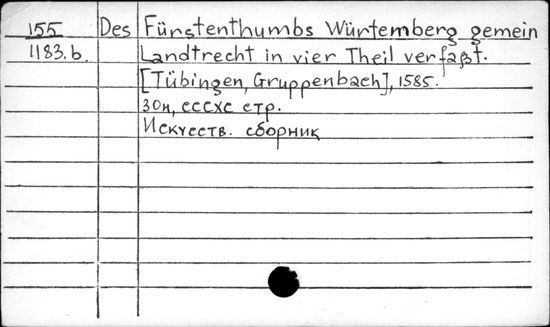 155 Des Fürstenthumbs Würtemberg gemein
1183.b. Landtrecht in vier Theil verfaßt.
[Tübingen, Gruppenbach], 1585.
30н, cccxc стр.
Искусств. сборник